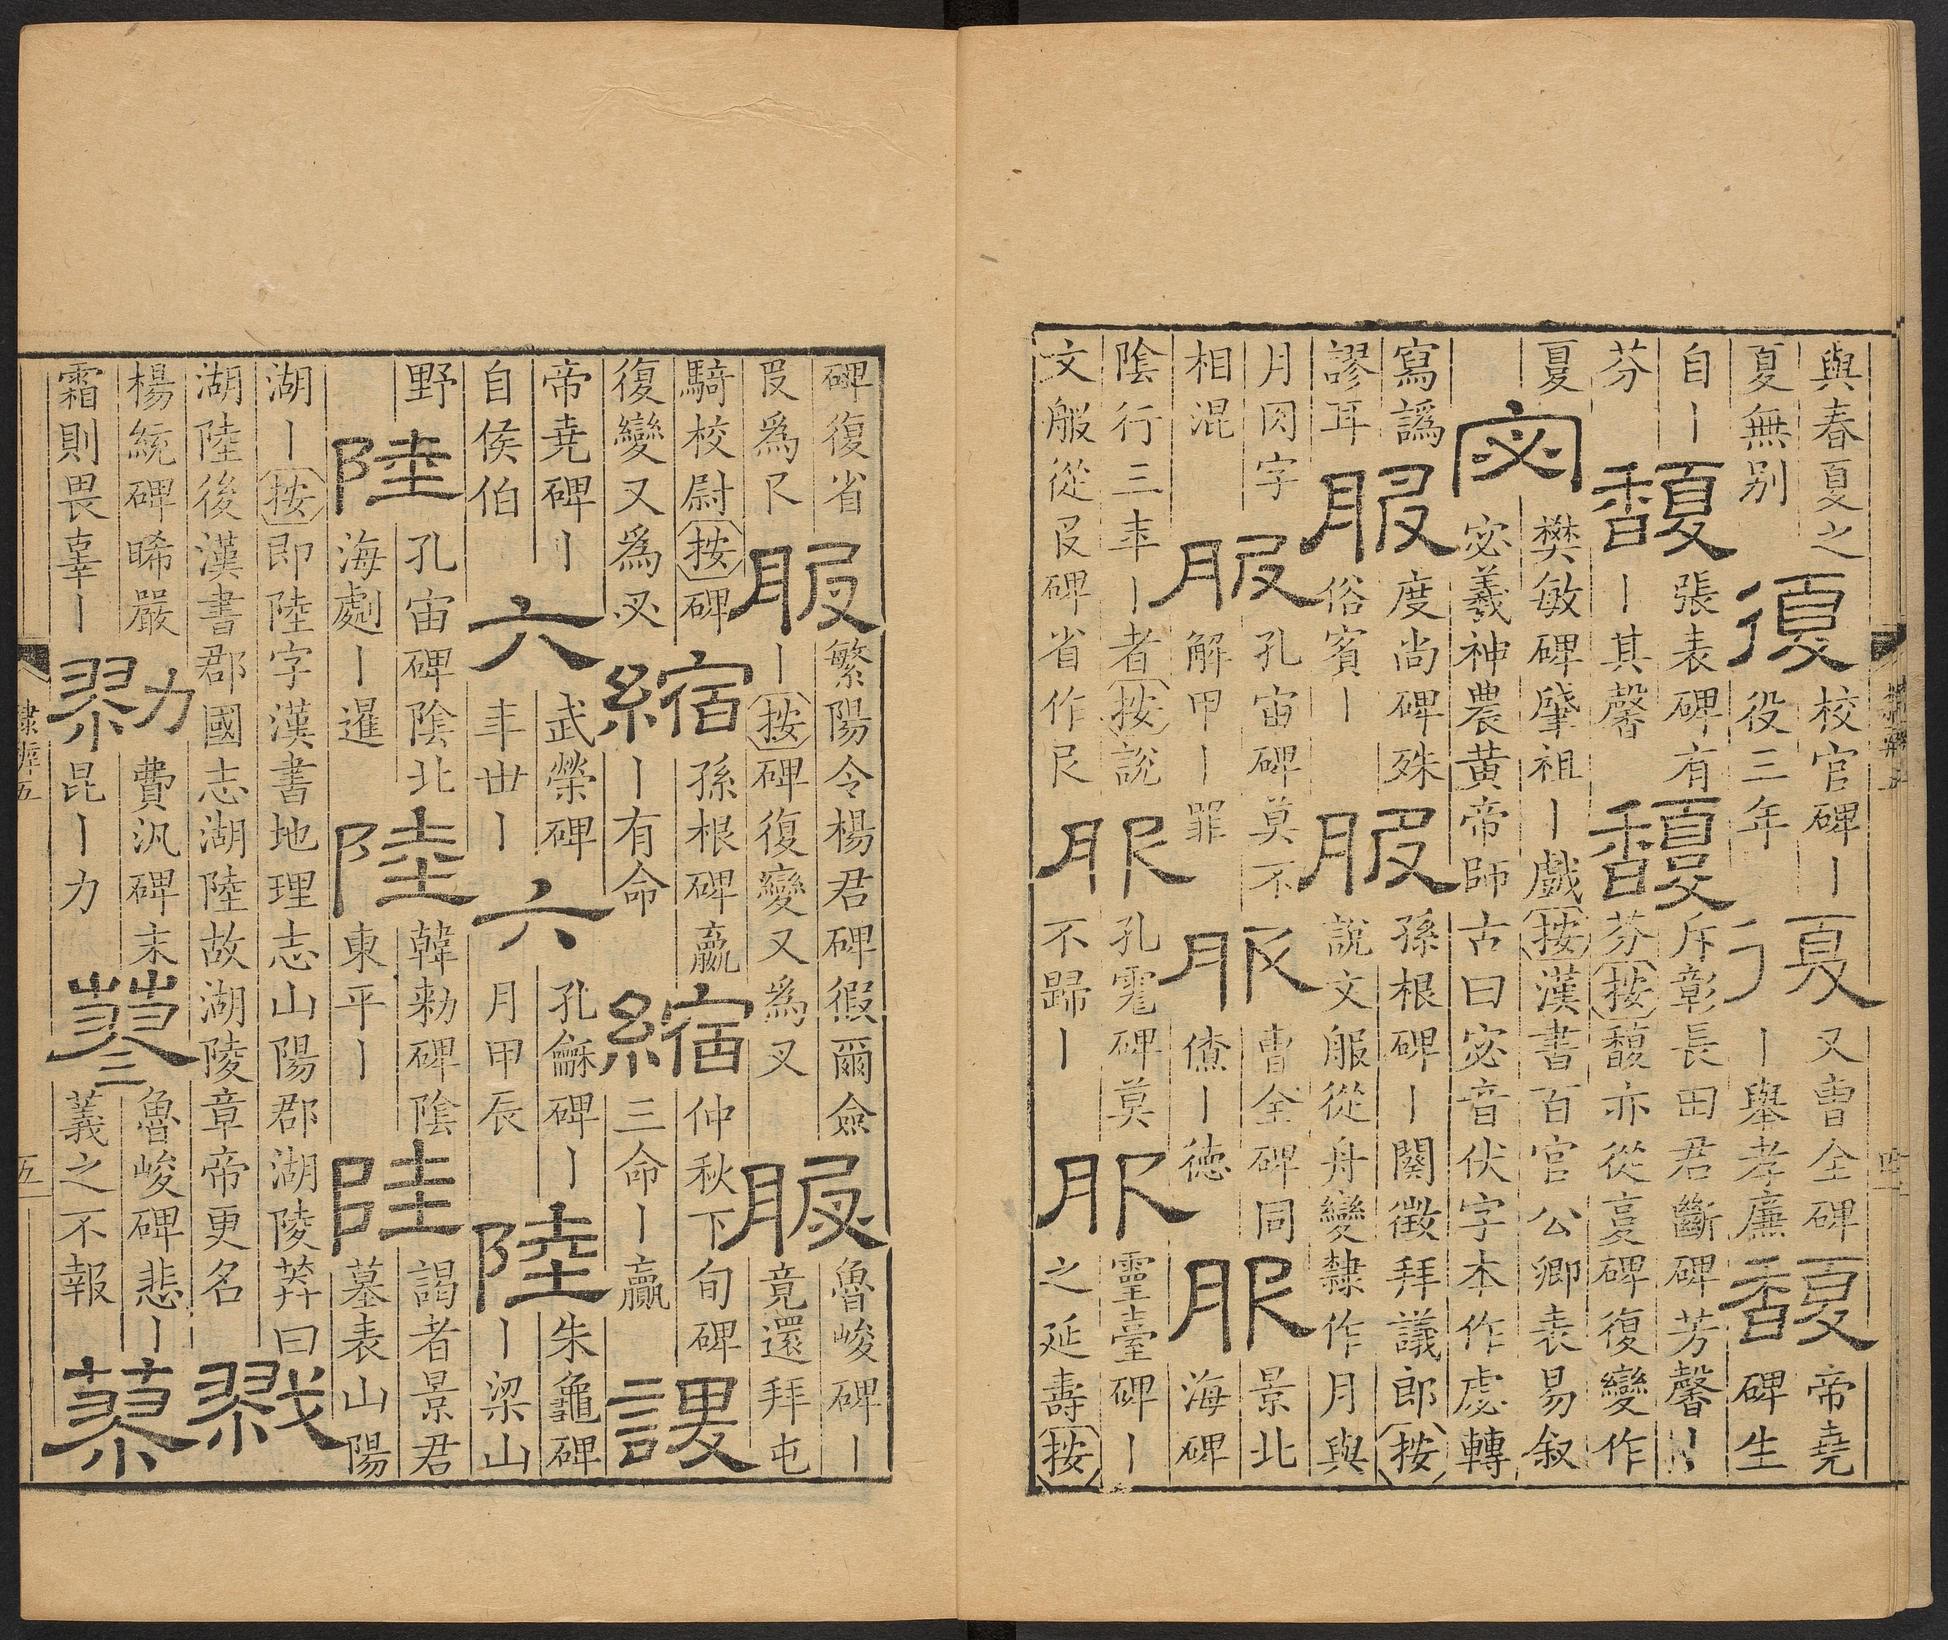 與春夏之
夏無别
復
校官碑丨
役三年
復
又曹全碑
丨舉孝廉
馥
帝堯
碑生
自丨
芬
馥
張表碑有
丨其馨
馥
斥彰長田君斷碑芳馨丨
芬按馥亦從畐碑復變作
夏
宓
樊敏碑肇祖丨戲按漢書百官公卿表易叙
宓羲神農黄帝師古曰宓音伏字本作虙轉
寫譌
謬耳
服
度尚碑殊
俗賓丨
服
孫根碑丨闕徵拜議郎按
說文服從舟變隸作月與
月㓁字
相混
服
孔宙碑莫不
解甲丨罪
服
曹全碑同
僚丨德
服
景北
海碑
陰行三年丨者按說
文服從𠬝碑省作尺
服
孔霓碑莫
不歸丨
服
靈臺碑丨
之延壽按
碑復省
𠬝爲尺
服
繁陽令楊君碑徦爾僉
丨按碑復變又爲叉
服
魯峻碑丨
竟還拜屯
騎校尉按碑
復變又爲㕛
縮
孫根碑贏
丨有命
縮
仲秋下旬碑
三命丨贏
謖
帝堯碑丨
自侯伯
六
武榮碑
年丗丨
六
孔龢碑丨
月甲辰
陸
朱龜碑
丨梁山
野
陸
孔宙碑陰北
海劇丨暹
陸
韓勑碑陰
東平丨
陸
謁者景君
墓表山陽
湖丨按即陸字漢書地理志山陽郡湖陵莽曰
湖陸後漢書郡國志湖陸故湖陵章帝更名
戮
楊統碑晞嚴
霜則畏辜丨
勠
費汎碑末
昆丨力
蓼
魯峻碑悲丨
義之不報
蓼
隸辨五
五